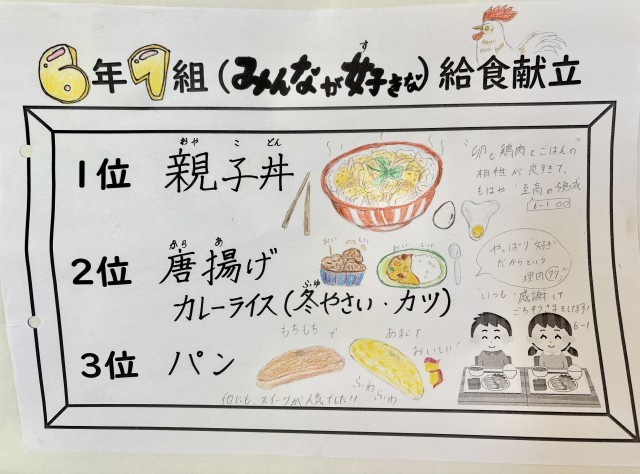 6年1組(みんなが好きな)給食献立
す
おや こ どん
1位 親子丼
"卵と鶏肉とごはんの"
相性が良すぎて、
もはや 至高の領域
6-1 〇〇
から あ
2位 唐揚げ
おいしい
おいしい
ふゆ
カレーライス(冬やさい・カツ)
やっぱり"好き"
だからという
理由
いつも 感謝して
ごちそうさまでした!
6-1
3位 パン
もちもちで
あまくて
おいしい!
ふわ
ふわ
他にも、スイーツが人気でした!!